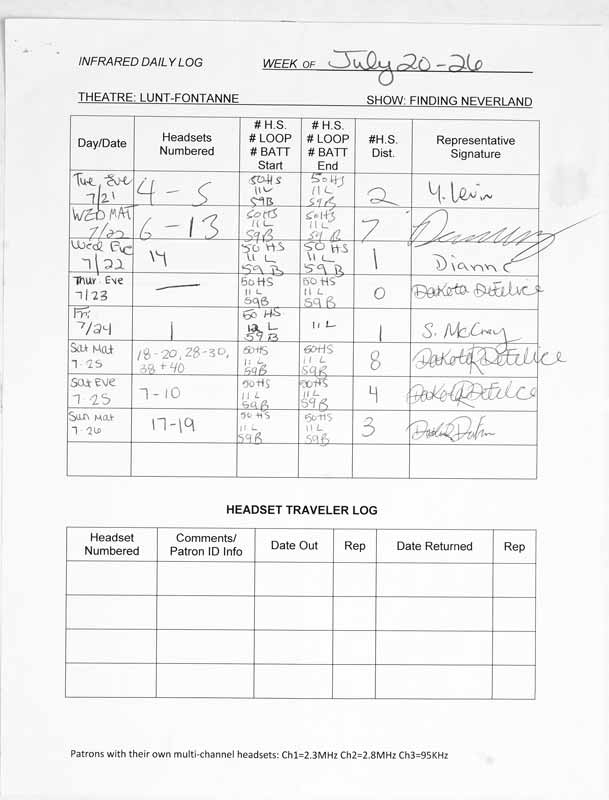 INFRARED DAILY LOG WEEK OF July 20-26
THEATRE: LUNT-FONTANNE SHOW: FINDING NEVERLAND
Day/Date Headsets Numbered # H.S. # LOOP # BATT Start # H.S. # LOOP # BATT End #H.S. Dist. Representative Signature
Tue Eve 7/21 4-5 50HS 11L 59B 50HS 11L 59B 2 Y. Levin
WED MAT 7/22 6-13 50HS 11L 59B 50HS 11L 59B 7
Wed Eve 7/22 14 50 HS 11 L 59 B 50 HS 11 L 59 B 1 Dianne
Thur. Eve 7/23 — 50 HS 11 L 59B 50HS 11L 59B 0 Dakota DeFelice
Fri 7/24 1 50 HS. L 59 B 11 L 1 S. McCray
Sat Mat 7-25 18-20, 28-30, 38+40 50HS 11L 59B 50HS 11 L 59B 8 Dakota R DeFelice
Sat Eve 7-25 7-10 50HS 11L 59B 50HS 11L 59B 4 Dakota R DeFelice
Sun Mat 7-26 17-19 50 HS 11 L 59B 50HS 11L 59B 3
HEADSET TRAVELER LOG
Headset Numbered Comments/ Patron ID Info Date Out Rep Date Returned Rep
Patrons with their own multi-channel headsets: Ch1=2.3MHz Ch2=2.8MHz Ch3=95KHz